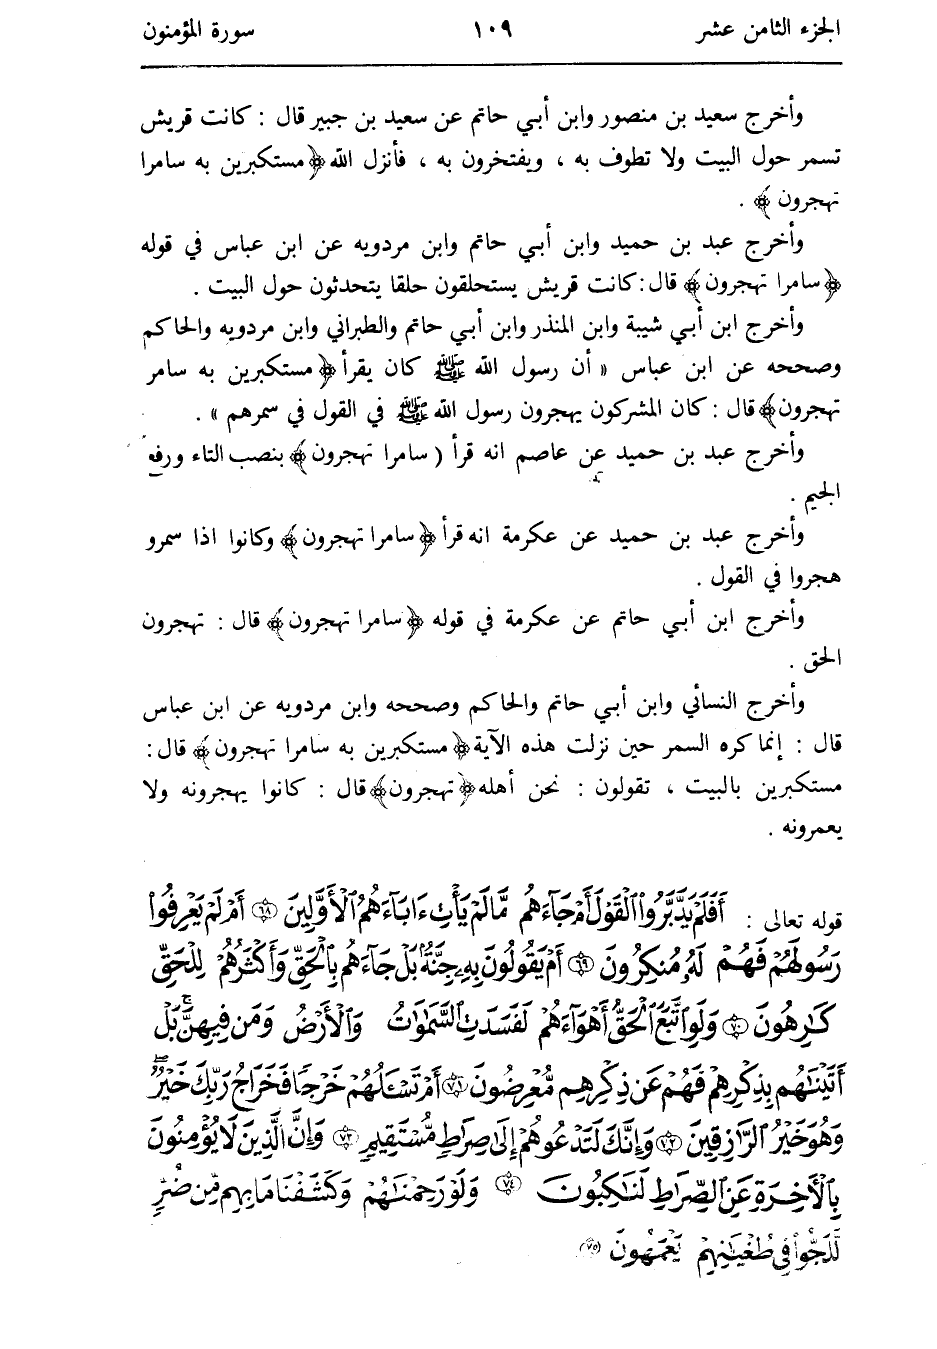 الجزء الثامن عشر ١٠٩ سورة المؤمنون
وأخرج سعيد بن منصور وابن أبي حاتم عن سعيد بن جبير قال : كانت قريش
تسمر حول البيت ولا تطوف به ، ويفتخرون به ، فأنزل الله ﴿مستكبرين به سامرا
تهجرون ﴾ .
وأخرج عبد بن حميد وابن أبي حاتم وابن مردويه عن ابن عباس في قوله
﴿سامرا تهجرون﴾ قال : كانت قريش يستحلقون حلقا يتحدثون حول البيت .
وأخرج ابن أبي شيبة وابن المنذر وابن أبي حاتم والطبراني وابن مردويه والحاكم
وصححه عن ابن عباس « أن رسول الله ﷺ كان يقرأ ﴿مستكبرين به سامر
تهجرون﴾ قال : كان المشركون يهجرون رسول الله ﷺ في القول في سمرهم » .
وأخرج عبد بن حميد عن عاصم انه قرأ ( سامرا تهجرون﴾ بنصب التاء ورفع
الجيم .
وأخرج عبد بن حميد عن عكرمة انه قرأ ﴿سامرا تهجرون﴾ وكانوا اذا سمرو
هجروا في القول .
وأخرج ابن أبي حاتم عن عكرمة في قوله ﴿سامرا تهجرون﴾ قال : تهجرون
الحق .
وأخرج النسائي وابن أبي حاتم والحاكم وصححه وابن مردويه عن ابن عباس
قال : إنما كره السمر حين نزلت هذه الآية ﴿مستكبرين به سامرا تهجرون﴾ قال :
مستكبرين بالبيت ، تقولون : نحن أهله ﴿تهجرون﴾ قال : كانوا يهجرونه ولا
يعمرونه .
قوله تعالى : أَفَلَمْ يَدَّبَّرُوا۟ ٱلْقَوْلَ أَمْ جَآءَهُم مَّا لَمْ يَأْتِ ءَابَآءَهُمُ ٱلْأَوَّلِينَ ﴿٦٨﴾ أَمْ لَمْ يَعْرِفُوا۟
رَسُولَهُمْ فَهُمْ لَهُۥ مُنكِرُونَ ﴿٦٩﴾ أَمْ يَقُولُونَ بِهِۦ جِنَّةٌۢ بَلْ جَآءَهُم بِٱلْحَقِّ وَأَكْثَرُهُمْ لِلْحَقِّ
كَٰرِهُونَ ﴿٧٠﴾ وَلَوِ ٱتَّبَعَ ٱلْحَقُّ أَهْوَآءَهُمْ لَفَسَدَتِ ٱلسَّمَٰوَٰتُ وَٱلْأَرْضُ وَمَن فِيهِنَّ ۚ بَلْ
أَتَيْنَٰهُم بِذِكْرِهِمْ فَهُمْ عَن ذِكْرِهِم مُّعْرِضُونَ ﴿٧١﴾ أَمْ تَسْـَٔلُهُمْ خَرْجًا فَخَرَاجُ رَبِّكَ خَيْرٌ ۖ
وَهُوَ خَيْرُ ٱلرَّٰزِقِينَ ﴿٧٢﴾ وَإِنَّكَ لَتَدْعُوهُمْ إِلَىٰ صِرَٰطٍ مُّسْتَقِيمٍ ﴿٧٣﴾ وَإِنَّ ٱلَّذِينَ لَا يُؤْمِنُونَ
بِٱلْأَخِرَةِ عَنِ ٱلصِّرَٰطِ لَنَٰكِبُونَ ﴿٧٤﴾ وَلَوْ رَحِمْنَٰهُمْ وَكَشَفْنَا مَا بِهِم مِّن ضُرٍّ
لَّلَجُّوا۟ فِى طُغْيَٰنِهِمْ يَعْمَهُونَ ﴿٧٥﴾